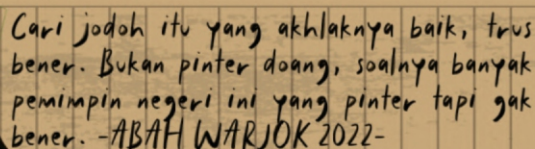 Cari jodoh itu yang akhlaknya baik, trus
bener. Bukan pinter doang, soalnya banyak
pemimpin negeri ini yang pinter tapi gak
bener. -ABAH WARJOK 2022-